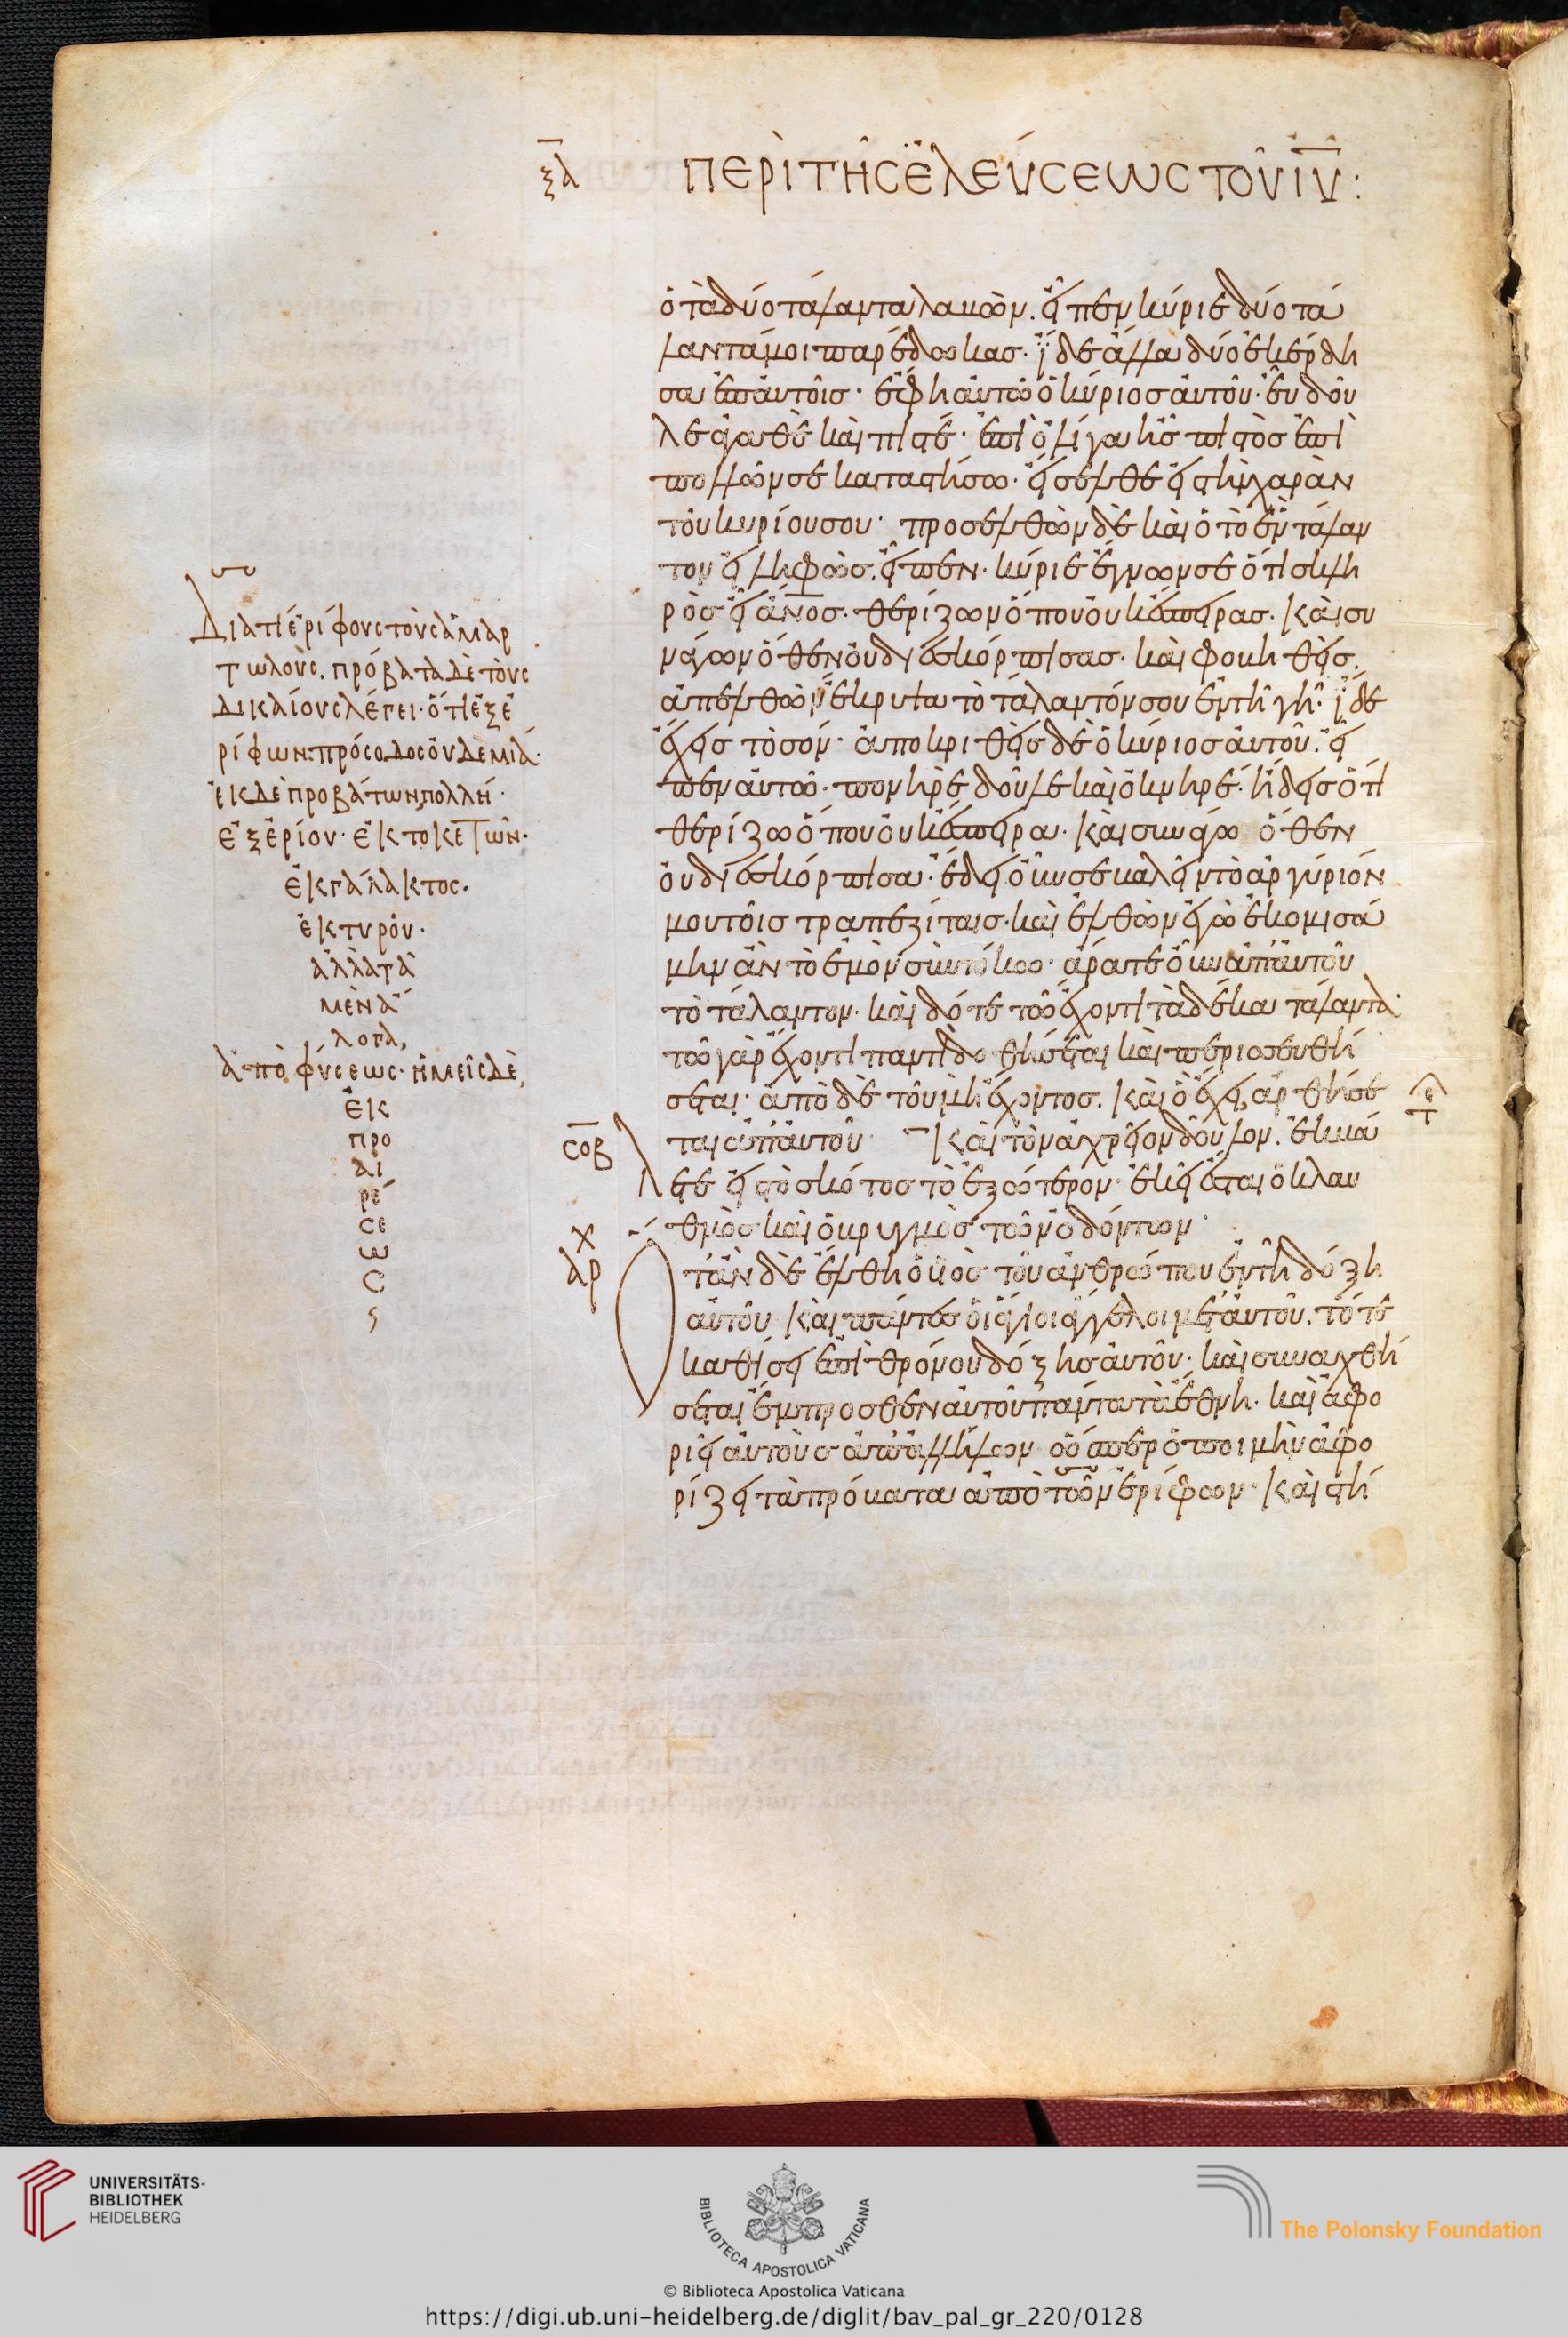 ξα
ΠΕΡῚ ΤΗ͂Σ ἘΛΕΎΣΕΩΣ ΤΟΥ͂ ΙΥ͂:
ὁ τὰ δύο τάλαντα λαβὼν. εἶπεν κύριε δύο τά
λαντά μοι παρέδωκας· ἴδε ἄλλα δύο ἐκέρδη
σα ἐπ' αὐτοῖς· ἔφη αὐτῶ ὁ κύριος αὐτοῦ· εὖ δοῦ
λε ἀγαθὲ καὶ πιστέ· ἐπὶ ὀλίγα ἦς πιστὸς ἐπὶ
πολλῶν σε καταστήσω· εἴσελθε εἰς τὴν χαρὰν
τοῦ κυρίου σου· προσελθὼν δὲ καὶ ὁ τὸ ἓν τάλαν
τον εἰληφὼς. εἶπεν· κύριε ἔγνων σε ὅτι σκλη
ρὸς εἶ ἄνος· θερίζων ὅπου οὐκ ἔσπειρας· καὶ συ
νάγων ὅθεν οὐ διεσκόρπισας· καὶ φοβηθεὶς.
ἀπελθὼν ἔκρυψα τὸ τάλαντόν σου ἐν τῆ γῆ· ἴδε
ἔχεις τὸ σόν· ἀποκριθεὶς δὲ ὁ κύριος αὐτοῦ. εἶ
πεν αὐτῶ· πονηρὲ δοῦλε καὶ ὀκνηρέ· ἤδεις ὅτι
θερίζω ὅπου οὐκ ἔσπειρα· καὶ συνάγω ὅθεν
οὐ διεσκόρπισα· ἔδει οὖν σε βαλεῖν τὸ ἀργύριόν
μου τοῖς τραπεζίταις· καὶ ἐλθὼν ἐγὼ ἐκομισά
μην ἂν τὸ ἐμὸν σὺν τόκω· ἄρατε οὖν ἀπ' αὐτοῦ
τὸ τάλαντον· καὶ δότε τῶ ἔχοντι τὰ δέκα τάλαντα·
τῶ γὰρ ἔχοντι παντὶ δοθήσεται καὶ περισσευθή
σεται· ἀπὸ δὲ τοῦ μὴ ἔχοντος. καὶ ὃ ἔχει, ἀρθήσε
ται ἀπ' αὐτοῦ· καὶ τὸν ἀχρεῖον δοῦλον. ἐκβά
λετε εἰς τὸ σκότος τὸ ἐξώτερον· ἐκεῖ ἔσται ὁ κλαυ
θμὸς καὶ ὁ βρυγμὸς τῶν ὀδόντων·
Ὅταν δὲ ἔλθη ὁ υἱὸς τοῦ ἀνθρώπου ἐν τῆ δόξη
αὐτοῦ καὶ πάντες οἱ ἅγιοι ἄγγελοι μετ' αὐτοῦ. τότε
καθίσει ἐπὶ θρόνου δόξης αὐτοῦ· καὶ συναχθή
σεται ἔμπροσθεν αὐτοῦ πάντα τὰ ἔθνη· καὶ ἀφο
ριεῖ αὐτοὺς ἀπ' ἀλλήλων ὥσπερ ὁ ποιμὴν ἀφο
ρίζει τὰ πρόβατα ἀπὸ τῶν ἐρίφων· καὶ στή
Διατί ἐρίφους τοὺς ἁμαρ
τωλοὺς. πρόβατα δὲ τοὺς
δικαίους λέγει· ὅτι ἐξ ἐ
ρίφων πρόσοδος οὐδεμία·
ἐκ δὲ προβάτων, πολλή·
ἐξ ἐρίον· ἐκ τοκετῶν·
ἐκ γάλακτος·
ἐκ τυροῦ·
ἀλλὰ τὰ
μὲν ἄ
λογα,
ἀπὸ φύσεως· ἡμεῖς δὲ,
ἐκ
προ
αι
ρέ
σε
ω
ς
σοβ
χ
αρ
τ
UNIVERSITÄTS-
BIBLIOTHEK
HEIDELBERG
BIBLIOTECA APOSTOLICA VATICANA
© Biblioteca Apostolica Vaticana
The Polonsky Foundation
https://digi.ub.uni-heidelberg.de/diglit/bav_pal_gr_220/0128